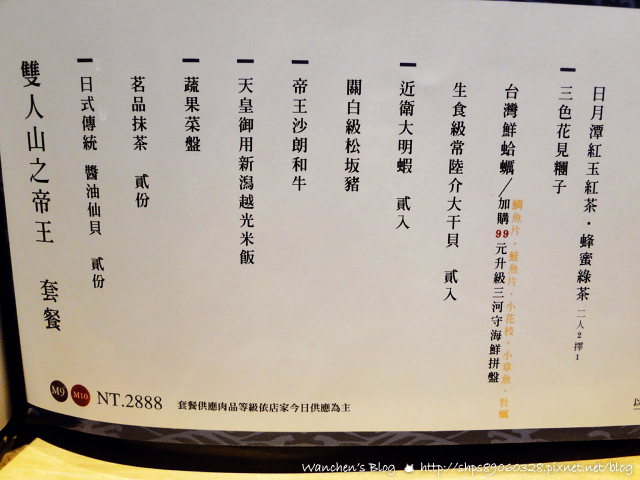 雙人山之帝王 套餐
日式傳統 醬油仙貝 貳份
茗品抹茶 貳份
蔬果菜盤
天皇御用新潟越光米飯
帝王沙朗和牛
關白級松坂豬
近衛大明蝦 貳入
生食級常陸介大干貝 貳入
台灣鮮蛤蠣／加購99元升級三河守海鮮拼盤
鯛魚片．鮭魚片．小花枝．小章魚．牡蠣
三色花見糰子
日月潭紅玉紅茶・蜂蜜綠茶 二人2擇1
M9 M10 NT.2888 套餐供應肉品等級依店家今日供應為主
以
Wanchen's Blog http://shps89060328.pixnet.net/blog